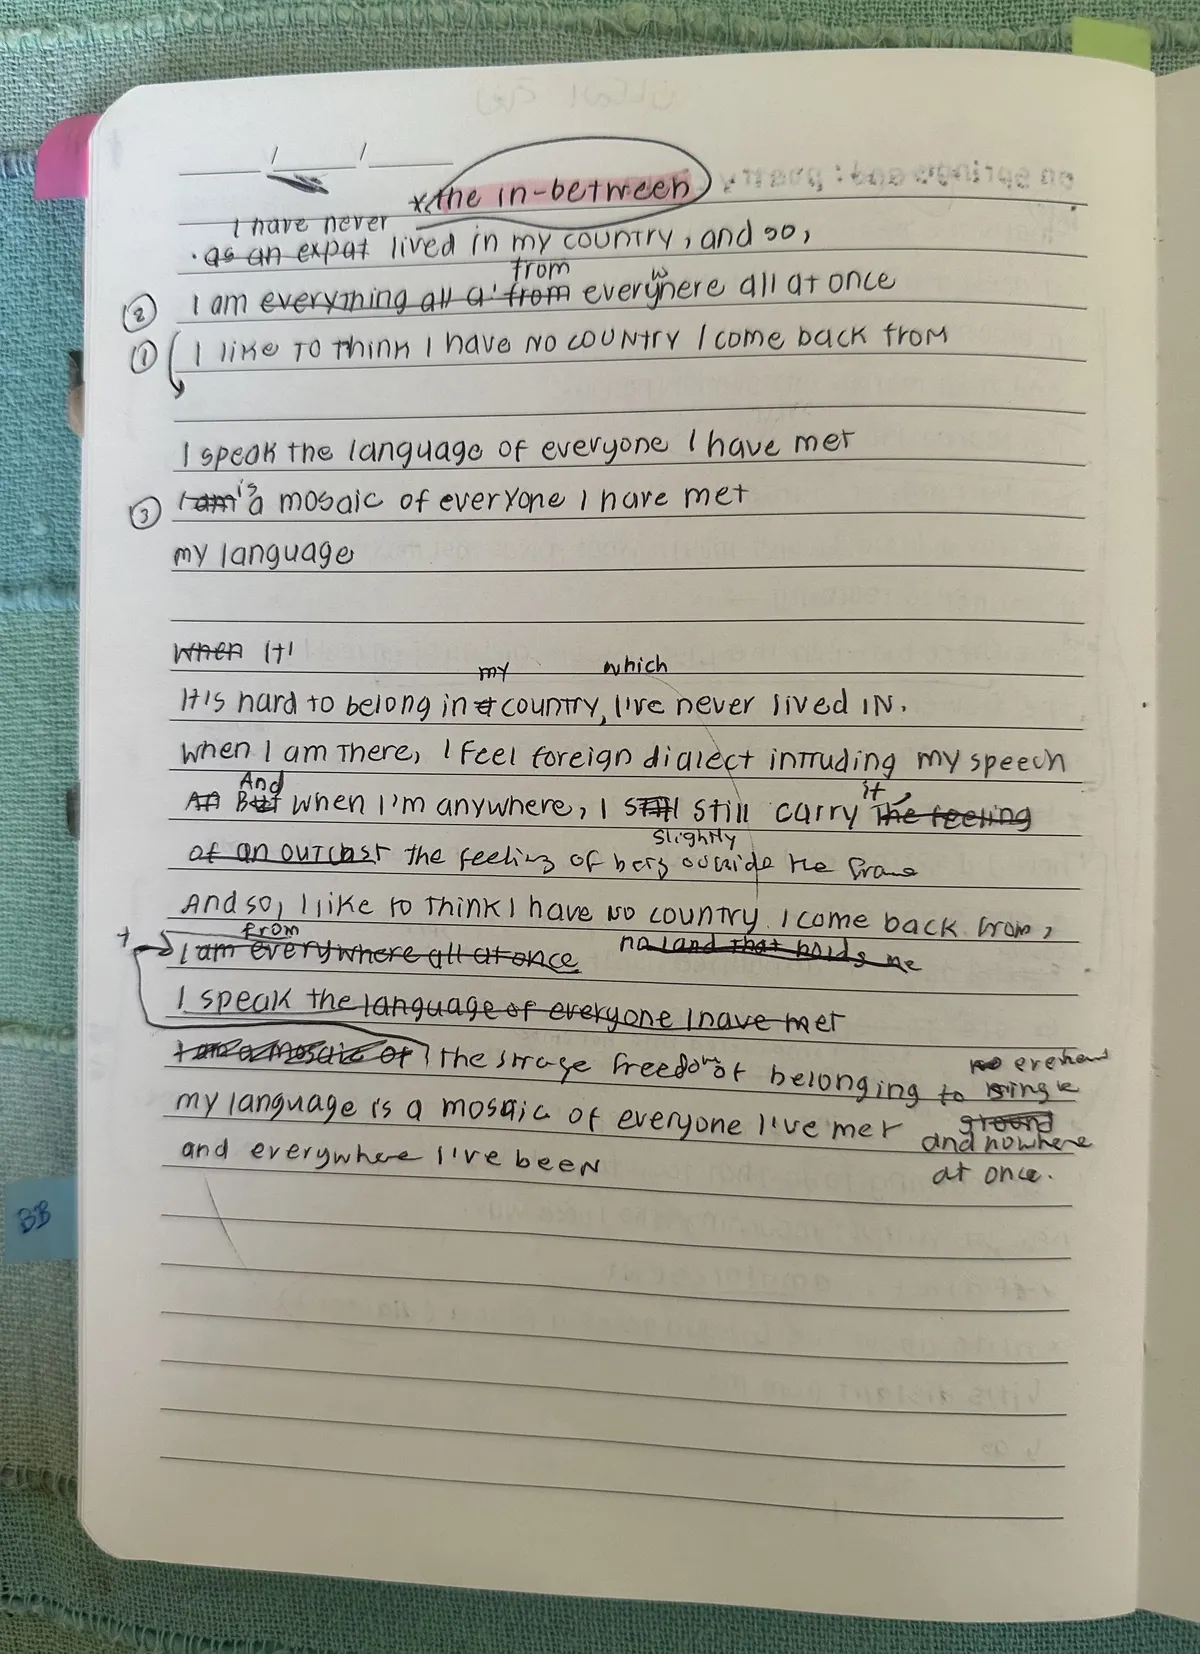 *the in-between
I have never
· as an expat lived in my country, and so,
from
w
② I am everything all a' from everywhere all at once
① I like to think I have no country I come back from
I speak the language of everyone I have met
is
③ I am a mosaic of everyone I have met
my language
When It'
my which
It's hard to belong in a country, I've never lived in.
When I am there, I feel foreign dialect intruding my speech
And it
An But when I'm anywhere, I still still carry the feeling
slightly
of an outcast the feeling of being outside the frame
And so, I like to think I have no country I come back from,
from
+ I am everywhere all at once no land that holds me
I speak the language of everyone I have met
I am a mosaic of the strage freedom of belonging to no everywhere
single
my language is a mosaic of everyone I've met ground
and nowhere
and everywhere I've been
at once.
BB